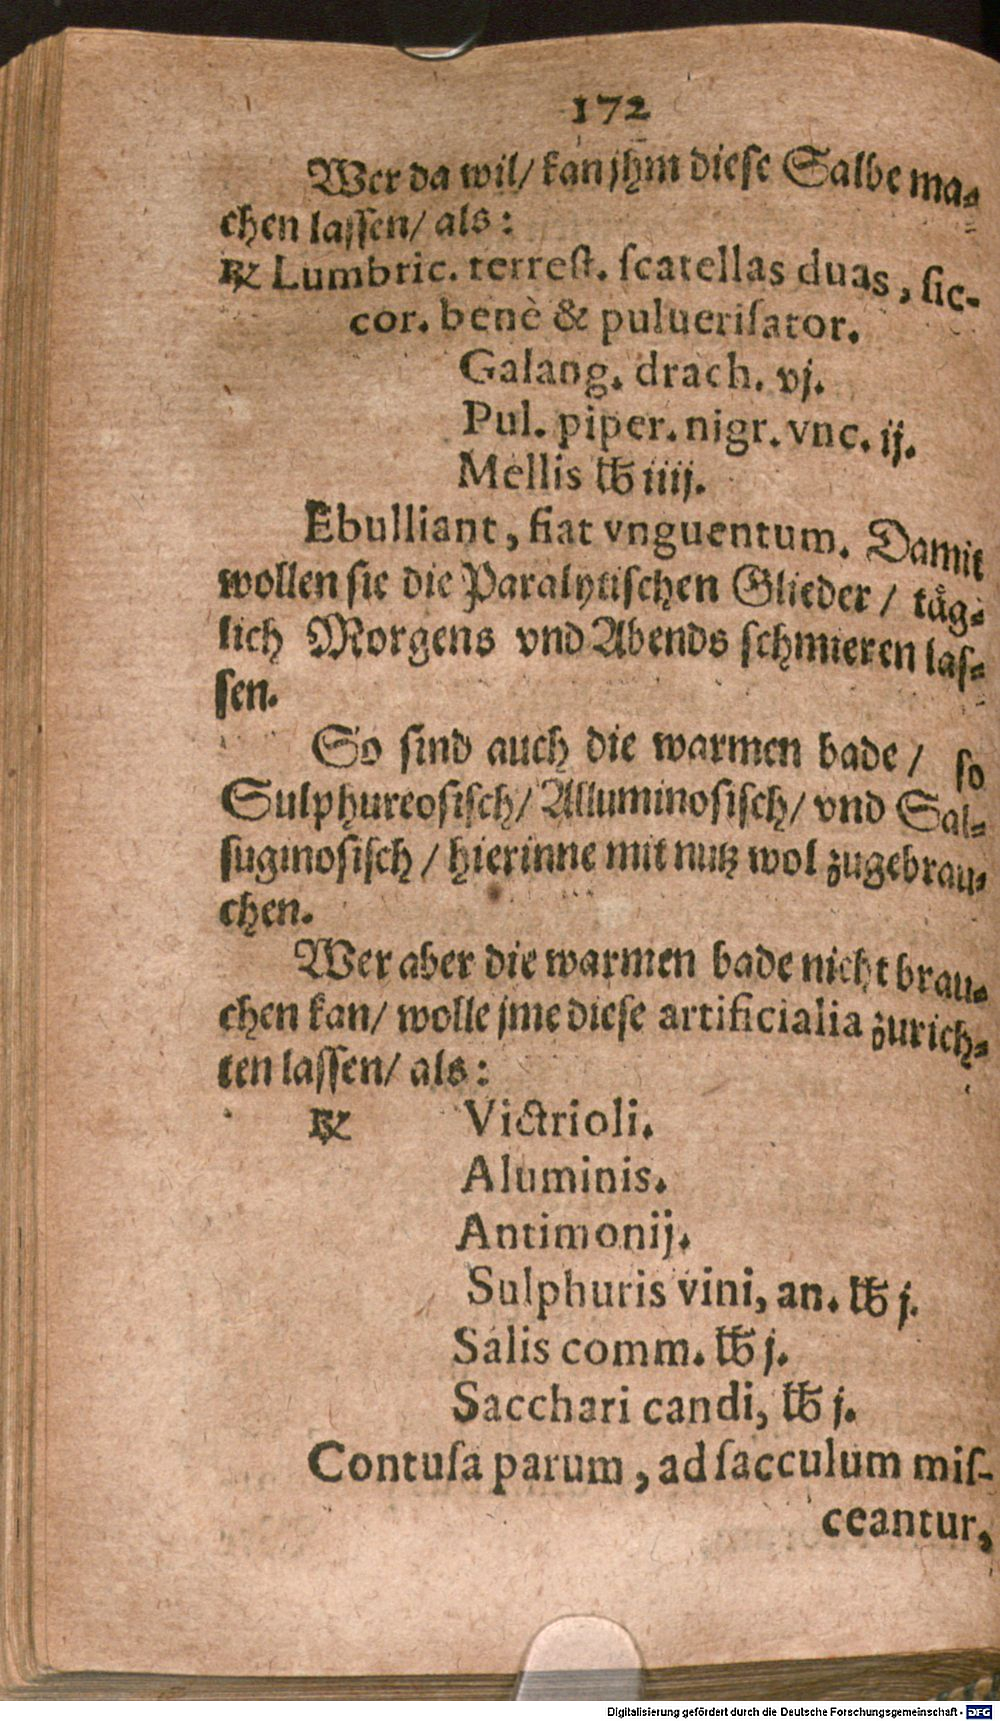 172
Wer da wil/ kan jhm diese Salbe ma-
chen lassen/ als:
℞ Lumbric. terrest. scatellas duas, sic-
cor. benè & puluerisator.
Galang. drach. vj.
Pul. piper. nigr. vnc. ij.
Mellis ℔ iiij.
Ebulliant, fiat vnguentum. Damit
wollen sie die Paralytischen Glieder / täg-
lich Morgens vnd Abends schmieren las-
sen.
So sind auch die warmen bade / so
Sulphureosisch/ Alluminosisch/ vnd Sal-
suginosisch / hierinne mit nutz wol zugebrau-
chen.
Wer aber die warmen bade nicht brau-
chen kan/ wolle jme diese artificialia zurich-
ten lassen/ als:
℞ Victrioli.
Aluminis.
Antimonij.
Sulphuris vini, an. ℔ j.
Salis comm. ℔ j.
Sacchari candi, ℔ j.
Contusa parum, ad sacculum mis-
ceantur,
Digitalisierung gefördert durch die Deutsche Forschungsgemeinschaft - DFG